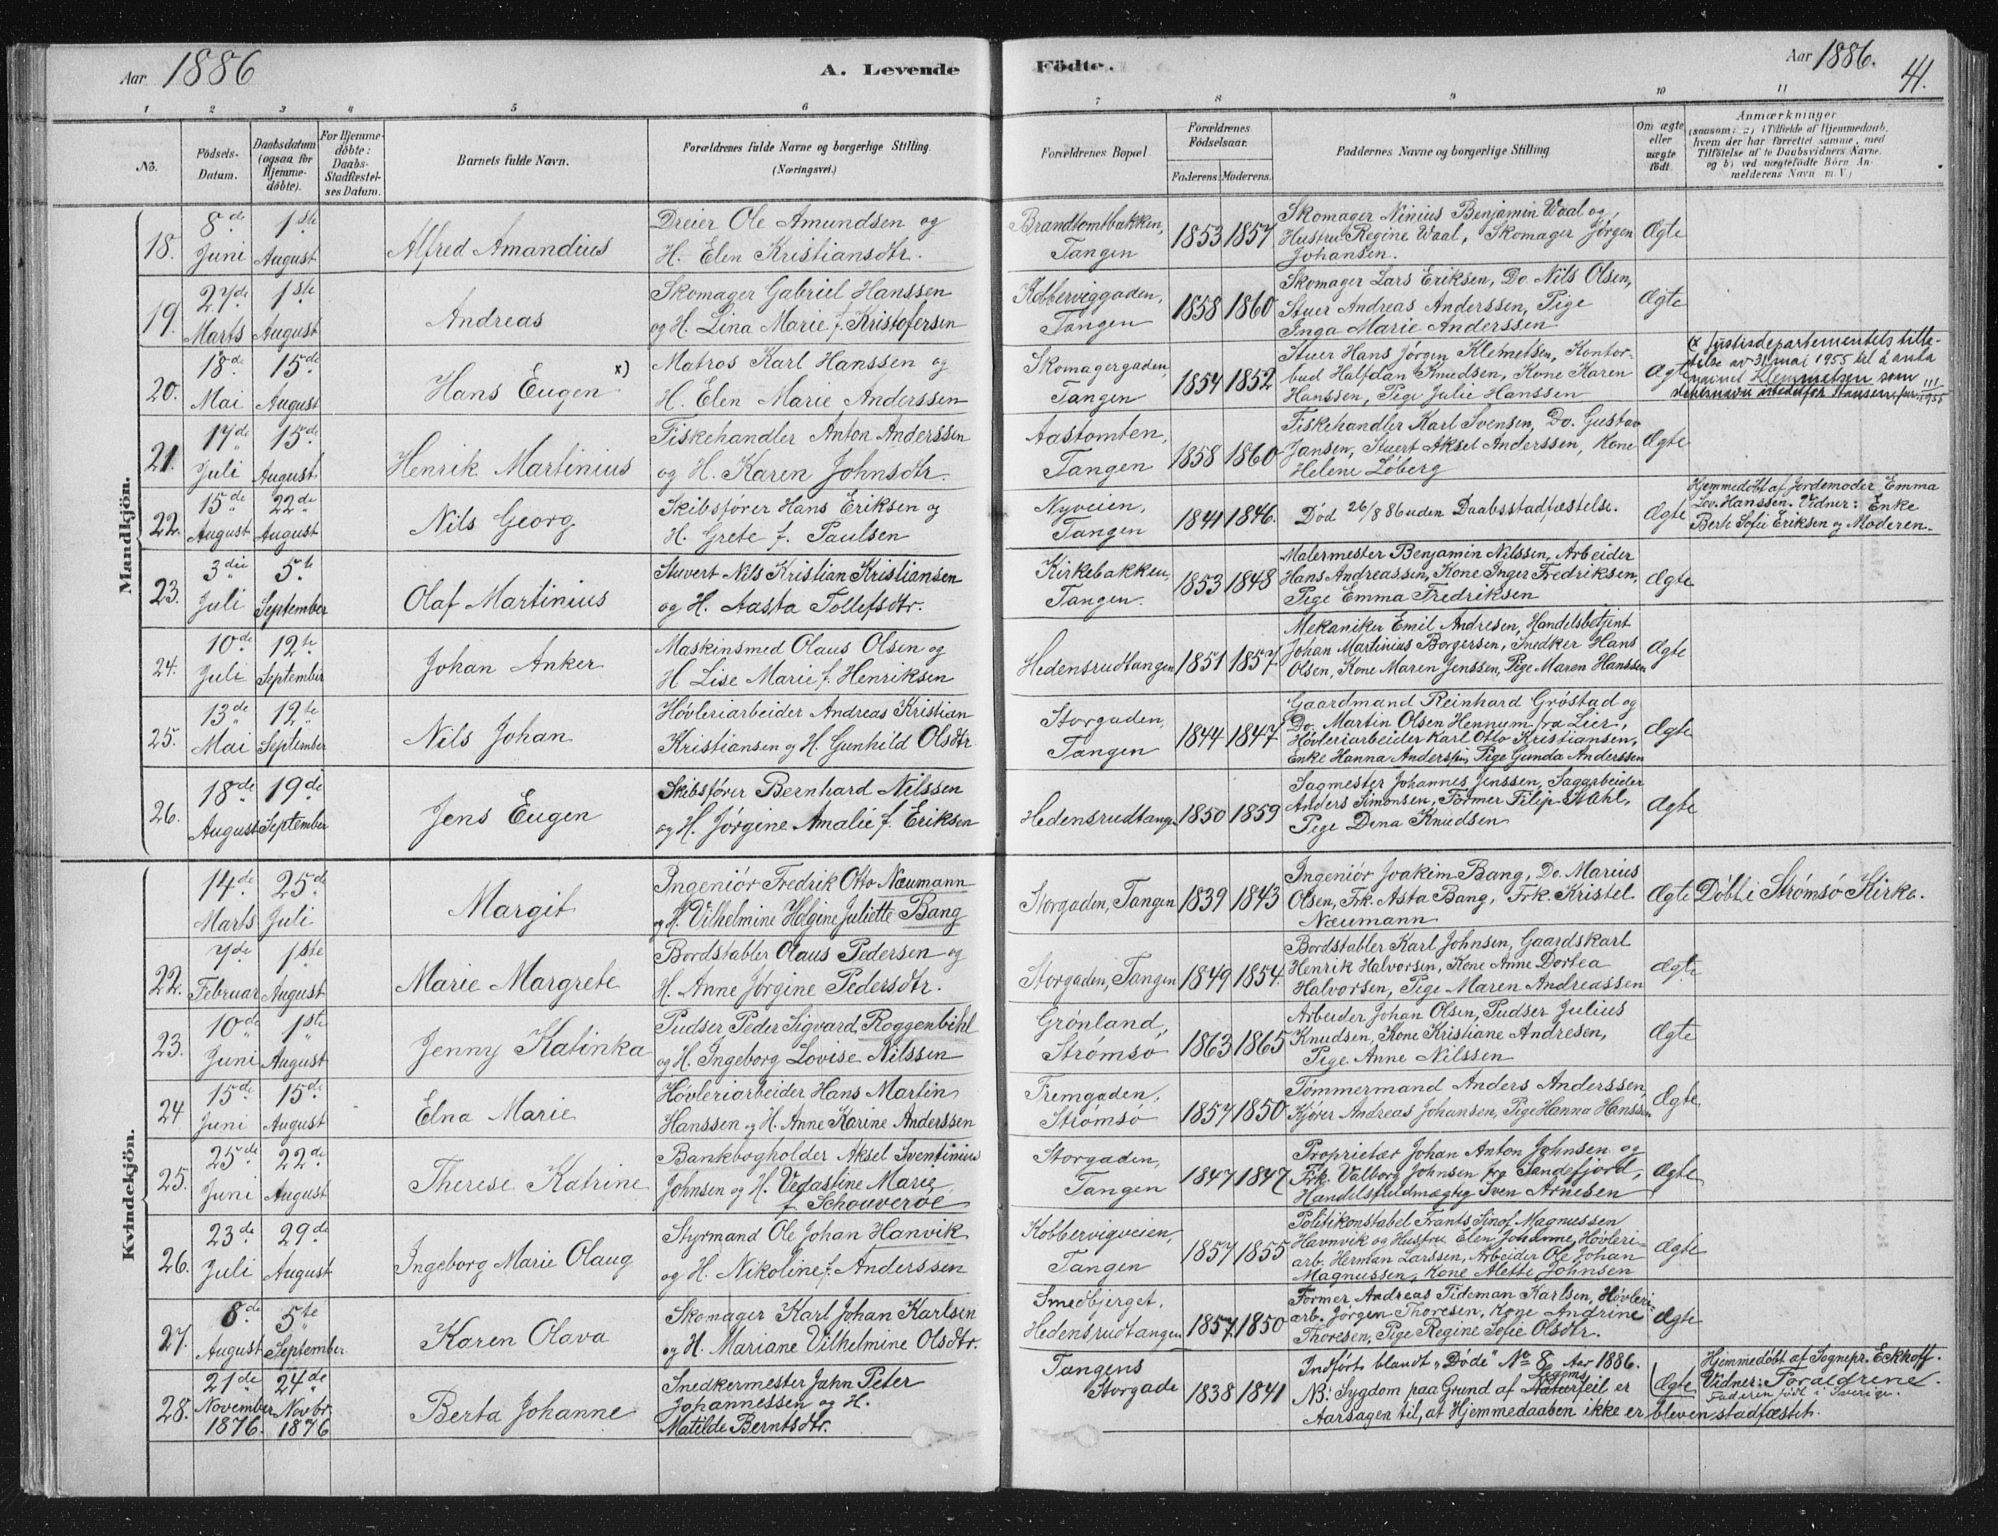 Aar 1886
A. Levende Födte.
Aar 1886.
41.
1 2 3 4 5 6 7 8 9 10 11
No.
Födsels-
Datum.
Daabsdatum
(ogsaa for
Hjemme-
döbte).
For Hjemme-
döbte:
Daabs-
Stadfæstel-
ses Datum.
Barnets fulde Navn.
Forældrenes fulde Navne og borgerlige Stilling
(Næringsvei.)
Forældrenes Bopæl
Forældrenes
Födselsaar.
Faderens. Moderens.
Faddernes Navne og borgerlige Stilling
Om ægte
eller
uægte
födt
Anmærkninger
(saasom: a) i Tilfælde af Hjemmedaab,
hvem der har forrettet samme, med
Tilföielse af to Daabsvidners Navne.
og b) ved uægtefödte Börn An-
melderens Navn m. V.)
Mandkjön.
18. 8de Juni 1ste August
Alfred Amandius
Dreier Ole Amundsen og
H. Elen Kristiansdtr.
Brandtomtbakken,
Tangen
1853 1857
Skomager Ninius Benjamin Waal og
Hustru Regine Waal, Skomager Jørgen
Johansen.
Ægte
19. 27de Marts 1ste August
Andreas
Skomager Gabriel Hanssen
og H. Lina Marie f. Kristofersen
Kobberviggaden,
Tangen
1858 1860
Skomager Lars Eriksen, Do. Nils Olsen,
Stuer Andreas Anderssen, Pige
Inga Marie Anderssen
Ægte
20. 18de Mai 15de August
Hans Eugen x)
Matros Karl Hanssen og
H. Elen Marie Anderssen
Skomagergaden,
Tangen
1854 1852
Stuer Hans Jørgen Klemetsen, Kontor-
bud Halfdan Knudsen, Kone Karen
Hanssen, Pige Julie Hanssen
Ægte
(x Justisdepartementets tilla-
telse av 31. mai 1955 til å anta
navnet Klemmetsen som
21. 17de Juli 15de August
Henrik Martinius
Fiskehandler Anton Anderssen
og H. Karen Johnsdtr.
Aastomten,
Tangen
1858 1860
Fiskehandler Karl Svensen, Do. Gustav
Jansen, Stuert Aksel Anderssen, Kone
Helene Löberg
Ægte
22. 15de August 22de August
Nils Georg
Skibsfører Hans Eriksen og
H. Grete f. Paulsen
Nyveien,
Tangen
1841 1846.
Død 26/8 86 uden Daabsstadfæstelse.
Ægte
Hjemmedøbt af Jordemoder Emma
Lov. Hanssen. Vidner: Enke
Berte Sofie Eriksen og Moderen.
23. 3die Juli 5te September
Olaf Martinius
Stuvert Nils Kristian Kristiansen
og H. Aasta Tollefsdtr.
Kirkebakken,
Tangen.
1853 1848
Malermester Benjamin Nilssen, Arbeider
Hans Andreassen, Kone Inger Fredriksen,
Pige Emma Fredriksen
Ægte
24. 10de Juli 12te September
Johan Anker
Maskinsmed Olaus Olsen og
H. Lise Marie f. Henriksen
Hedensrudtangen
1851 1857
Mekaniker Emil Andresen, Handelsbetjent
Johan Martinius Borgersen, Snedker Hans
Olsen, Kone Maren Jenssen, Pige Maren Hanssen
Ægte
25. 13de Mai 12te September
Nils Johan
Høvleriarbeider Andreas Kristian
Kristiansen og H. Gunhild Olsdtr
Storgaden,
Tangen
1844 1847
Gaardmand Reinhard Grøstad og
Do. Martin Olsen Hennum fra Lier,
Høvleriarbeider Karl Otto Kristiansen,
Enke Hanna Anderssen, Pige Gunda Anderssen
Ægte
26. 18de August 19de September
Jens Eugen
Skibsfører Bernhard Nilssen
og H. Jörgine Amalie f. Eriksen
Hedensrudtangen
1850 1859
Sagmester Johannes Jenssen, Sagarbeider
Anders Simonsen, Former Filip Wahl,
Pige Dina Knudsen
Ægte
Kvindekjön.
14de Marts 25de Juli
Margit
Ingeniör Fredrik Otto Næumann
og H. Vilhelmine Helgine Juliette Bang
Storgaden, Tangen
1839 1843
Ingeniör Joakim Bang, Do. Marius
Olsen, Frk. Asta Bang, Frk. Kristel
Næumann
Ægte
Döbt i Strømsö Kirke.
22. 7de Februar 1ste August
Marie Margrete
Bordstabler Olaus Pedersen og
H. Anne Jørgine Pedersdtr.
Storgaden, Tangen
1849 1854.
Bordstabler Karl Johnsen, Gaardskarl
Henrik Halvorsen, Kone Anne Dortea
Halvorsen, Pige Maren Andreassen
Ægte
23. 10de Juni 1ste August
Jenny Katinka
Pudser Peder Sigvard Roggenbihl
og H. Ingeborg Lovise Nilssen
Grönland,
Strømsö
1863 1865
Arbeider Johan Olsen, Pudser Julius
Knudsen, Kone Kristiane Andresen,
Pige Anne Nilssen
Ægte
24 15de Juni 15de August
Elna Marie
Høvleriarbeider Hans Martin
Hanssen og H. Anne Karine Anderssen
Fremgaden,
Strømsö
1857 1850
Tømmermand Anders Anderssen,
Kjörer Andreas Johansen, Pige Hanna Hanssen
Ægte
25. 25de Juni 22de August
Therese Katrine
Bankbogholder Aksel Sventinius
Johnsen og H. Vedastine Marie
f. Schouveröe
Storgaden,
Tangen
1847 1847
Proprietær Johan Anton Johnsen og
Frk. Valborg Johnsen fra Sandefjord,
Handelsfuldmægtig Sven Arnesen
Ægte
26. 23de Juli 29de August
Ingeborg Marie Olaug
Styrmand Ole Johan Hanvik
og H. Nikoline f. Anderssen
Kobbervigveien,
Tangen
1857 1855
Politikonstabel Frants Sinof Magnussen
Havnvik og Hustru Elen Johanne, Høvleri-
arb. Herman Larssen, Arbeider Ole Johan
Magnussen, Kone Alette Johnsen
Ægte
27. 8de August 5te September
Karen Olava
Skomager Karl Johan Karlsen
og H. Mariane Vilhelmine Olsdtr.
Smedbjerget,
Hedensrudtangen
1857 1850
Former Andreas Tideman Karlsen, Høvleri-
arb. Jørgen Thoresen, Kone Andrine
Thoresen, Pige Regine Sofie Olsdtr.
Ægte
28. 21de November 1876. 24de Novbr. 1876
Berta Johanne
Snedkermester Jahn Peter
Johannessen og H.
Matilde Berntsdtr.
Tangens
Storgade
1838 1841
Indført blandt „Døde" No 8 Aar 1886.
NB: Sygdom paa Grund af Naturfeil er
Aarsagen til, at Hjemmedaaben ikke er bleven stadfæstet.
Ægte
Hjemmedøbt af Sognepr. Eckhoff.
Vidner: Forældrene.
Faderen født i Sverige.